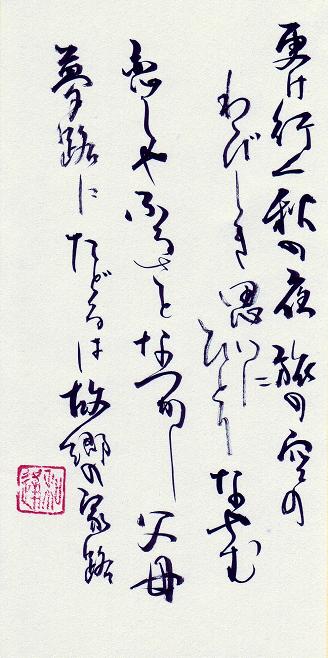 更け行く秋の夜旅の空の
わびしき思いにひとりなやむ
恋しやふるさとなつかし父母
夢路にたどるは故郷の家路